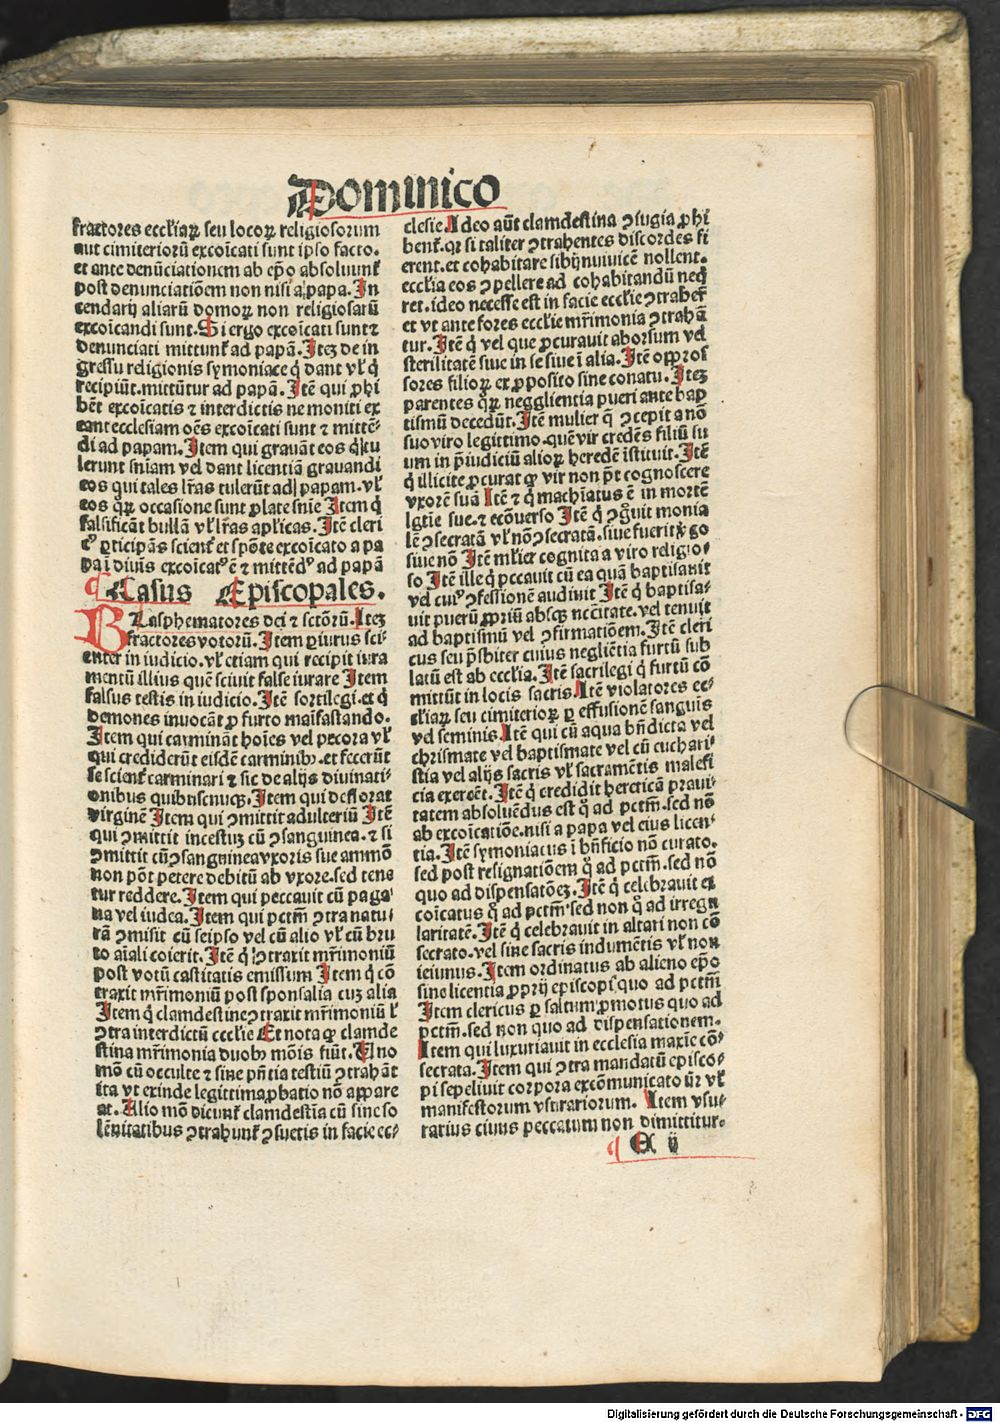 Dominico
fractores eccl'iaꝝ seu locoꝝ religiosorum
aut cimiteriorū excōicati sunt ipso facto.
et ante denūciationem ab ep̄o absoluunt᷑
post denunciatiōem non nisi a papa. In
cendarij aliarū domoꝝ non religiosarū
excōicandi sunt. Si ergo excōicati sunt ⁊
denunciati mittunt᷑ ad papā. Itez de in
gressu religionis symoniace q̇ dant vl' q̇
recipiūt. mittūtur ad papā. Itē qui ꝓhi
bēt excōicatis ⁊ interdictis ne moniti ex
eant ecclesiam oēs excōicati sunt ⁊ mittē-
di ad papam. Item qui grauāt eos q̇ l'tu
lerunt sn̄iam vel dant licentiā grauandi
eos qui tales l'ras tulerūt ad papam. vl'
eos qꝝ occasione sunt ꝓlate sn̄ie Item q̇
falsificāt bullā vl' l'ras ap'licas. Itē cleri
cꝰ ꝑticipās scient᷑ et spōte excōicato a pa
pa ī diuīs excōicatꝰ ē ⁊ mittēdꝰ ad papā
¶ Casus Episcopales.
BLasphematores dei ⁊ sctōrū. Itez
fractores votorū. Item ꝑiurus sci-
enter in iudicio. vl' etiam qui recipit iura
mentū illius quē sciuit false iurare Item
falsus testis in iudicio. Itē sortilegi. et q̇
demones inuocāt ꝓ furto maīfastando.
Item qui carmināt hoīes vel pecora vl'
qui crediderūt eisdē carminibꝫ. et fecerūt
se scient᷑ carminari ⁊ sic de alijs diuinati-
onibus quibuscūqꝫ. Item qui deflorat
virginē Item qui ꝯmittit adulteriū Itē
qui ꝯmittit incestuꝫ cū ꝯsanguinea. ⁊ si
ꝯmittit cū ꝯsanguinea vxoris sue ammō
non pōt petere debitū ab vxore. sed tene
tur reddere. Item qui peccauit cū paga-
na vel iudea. Item qui pctm̄ ꝯtra natu-
rā ꝯmisit cū seipso vel cū alio vl' cū bru
to aīali coierit. Itē q̇ ꝯtraxit mr̄imoniū
post votū castitatis emissum Item q̇ cō
traxit mr̄imoniū post sponsalia cuꝫ alia
Item q̇ clamdestine ꝯtraxit mr̄imoniū l'
ꝯtra interdictū eccl'ie Et nota ꝙ clamde
stina mr̄imonia duobꝫ mōis fiūt. Uno
mō cū occulte ⁊ sine pn̄tia testiū ꝯtrahāt᷑
ita vt exinde legittima ꝓbatio nō appare
at. Alio mō dicunt᷑ clamdestīa cū sine so
lēnitatibus ꝯtrahunt᷑ ꝯsuetis in facie ec-
clesie. Ideo aūt clamdestina ꝯiugia ꝓhi
bent᷑. qꝛ si taliter ꝯtrahentes discordes fi
erent. et cohabitare sibijnuuicē nollent.
eccl'ia eos ꝯpellere ad cohabitandū neq̇
ret. ideo necesse est in facie eccl'ie ꝯtraher᷑
et vt ante fores eccl'ie mr̄imonia ꝯtrahā
tur. Itē q̇ vel que ꝓcurauit aborsum vel
sterilitatē siue in se siue ī alia. Itē oppros
sores filioꝝ ex ꝓposito sine conatu. Itez
parentes qꝝ negglientia pueri ante bap
tismū decedūt. Itē mulier q̄ ꝯcepit a nō
suo viro legittimo. quē vir credēs filiū su
um in p̄iudiciū alioꝝ heredē īstituit. Itē
q̇ illicite ꝓcurat ꝙ vir non pn̄t cognoscere
vxorē suā Itē ⁊ q̇ machīatus ē in mortē
lgtīe sue. ⁊ ecōuerso Itē q̇ ꝯgͦuit monia
lē ꝯsecratā vl' nō ꝯsecratā. siue fuerit xͦ go
siue nō Itē ml'ier cognita a viro religio-
so Itē ille q̇ pccauit cū ea quā baptisauit
vel cuiꝰ ꝯfessionē audiuit Itē q̇ baptisa-
uit puerū ꝓpriū absqꝫ nc̄citate. vel tenuit
ad baptismū vel ꝯfirmatiōem. Itē cleri
cus seu p̄sbiter cuius neglīētia furtū sub
latū est ab eccl'ia. Itē sacrilegi q̇ furtū cō
mittūt in locis sacris. Itē violatores ec-
cl'iaꝝ seu cimiterioꝝ ꝑ effusionē sanguīs
vel seminis. Itē qui cū aqua bn̄dicta vel
chrismate vel baptismate vel cū euchari-
stia vel alijs sacris vl' sacramētis malefi
cia exercēt. Itē q̇ credidit hereticā praui-
tatem absoluēdus est qͦ ad pctm̄. sed nō
ab excōicatiōe. nisi a papa vel eius licen-
tia. Itē symoniacus ī bn̄ficio nō curato.
sed post resignatiōem qͦ ad pctm̄. sed nō
quo ad dispensatōeꝫ. Itē q̇ celebrauit ex
coīcatus qͦ ad pctm̄ sed non qͦ ad irregu
laritatē. Itē q̇ celebrauit in altari non cō
secrato. vel sine sacris indumētis vl' non
ieiunus. Item ordinatus ab alieno ep̄o
sine licentia ꝓprij episcopi quo ad pctm̄
Item clericus ꝑ saltum ꝓmotus quo ad
pctm̄. sed non quo ad dispensationem.
Item qui luxuriauit in ecclesia maxīe cō-
secrata. Item qui ꝯtra mandatū episco-
pi sepeliuit corpora excōmunicatoūꝛ vl'
manifestorum vsurariorum. Item vsu-
rarius cuius peccatum non dimittitur.
¶ A ij
Digitalisierung gefördert durch die Deutsche Forschungsgemeinschaft - DFG